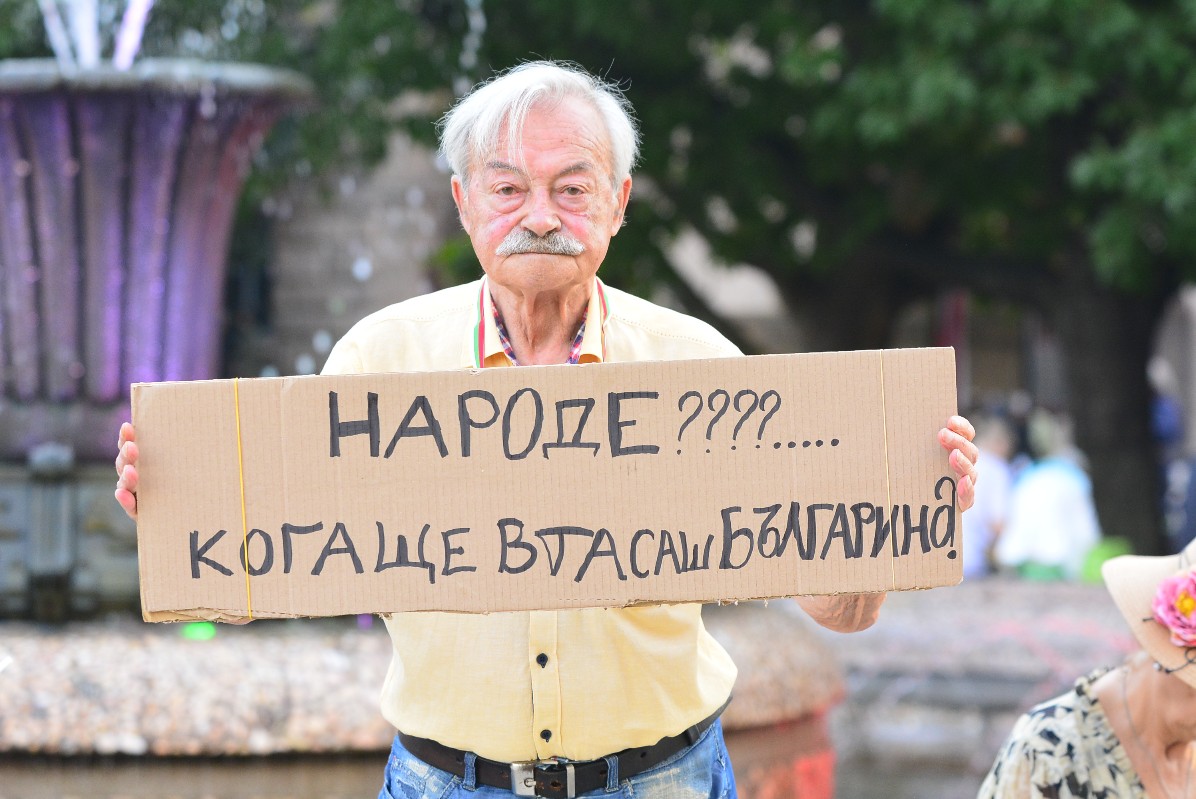 НАРОДЕ ????.....
КОГА ЩЕ ВТАСАШ БЪЛГАРИНО?